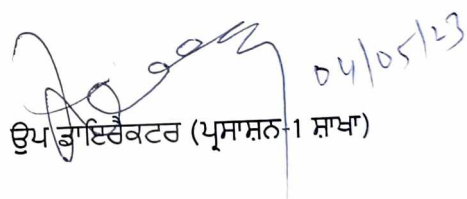 04/05/23
ਉਪ ਡਾਇਰੈਕਟਰ (ਪ੍ਰਸਾਸ਼ਨ-1 ਸ਼ਾਖਾ)